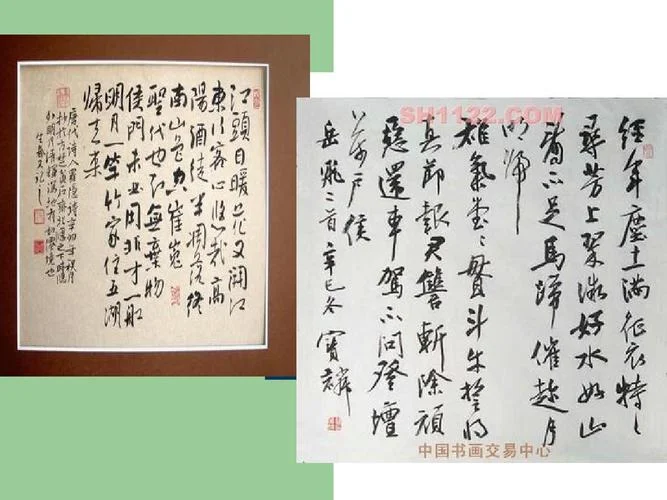 江頭日暖花又開江
東行客心悠哉高
陽酒徒半凋落終
南山色空崔嵬
聖代也知無棄物
侯門未必用非才一船
明月一竿竹家住五湖
歸去來
唐代詩人羅隱詩
SH1122.COM
經年塵土滿征衣特々
尋芳上翠微好水好山
看不足馬蹄催趁月
明歸
雄氣堂々貫斗牛誓將
真節報君讎斬除頑
惡還車駕不問登壇
萬戶侯
岳飛二首 辛巳冬 寶麟
中国书画交易中心